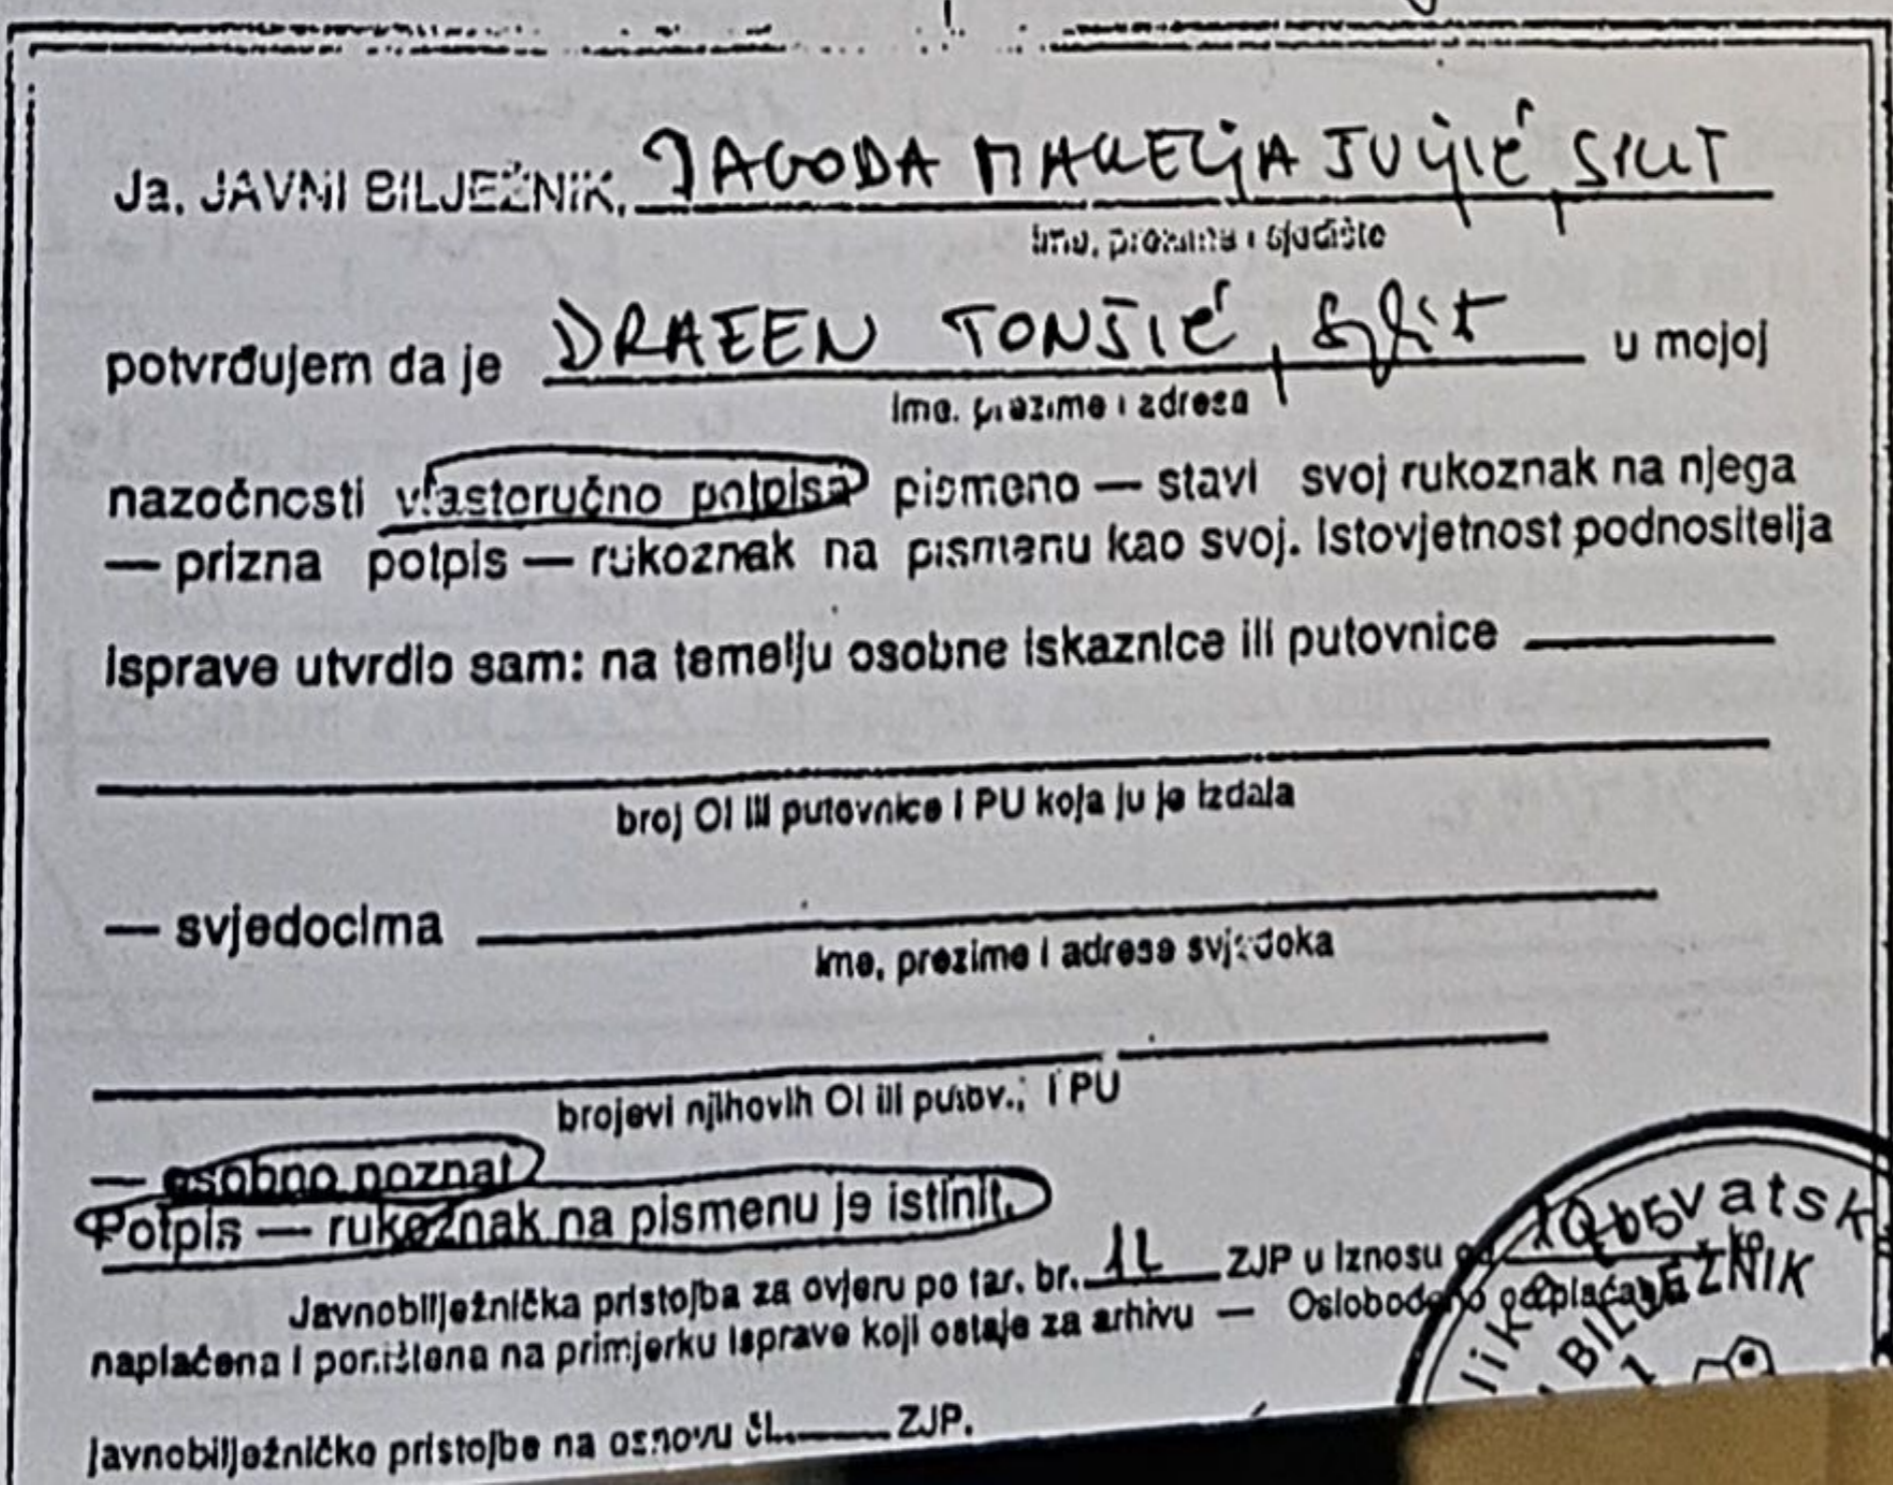 Ja, JAVNI BILJEŽNIK, JAGODA MAKELJA JUJIĆ, SPLIT
ime, prezime i sjedište
potvrđujem da je DRAŽEN TONŠIĆ, Split u mojoj
ime, prezime i adresa
nazočnosti vlastoručno potpisa pismeno — stavi svoj rukoznak na njega
— prizna potpis — rukoznak na pismenu kao svoj. Istovjetnost podnositelja
isprave utvrdio sam: na temelju osobne iskaznice ili putovnice
broj OI ili putovnice i PU koja ju je izdala
— svjedocima
ime, prezime i adrese svjedoka
brojevi njihovih OI ili putov., i PU
— osobno poznat
Potpis — rukoznak na pismenu je istinit.
Javnobilježnička pristojba za ovjeru po tar. br. 11 ZJP u iznosu od
naplaćena i poništena na primjerku isprave koji ostaje za arhivu — Oslobođeno od plaćanja
javnobilježničke pristojbe na osnovu čl. ZJP.
vatsk
BILJEŽNIK